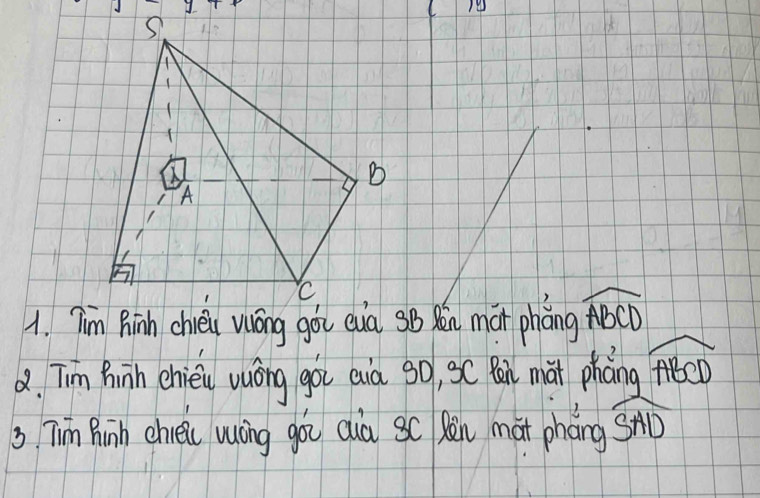 S
B
A
C
1. Tìm hình chiếu vuông góc của SB lên mặt phẳng ABCD
2. Tìm hình chiếu vuông góc của SD, SC lên mặt phẳng ABCD
3. Tìm hình chiếu vuông góc của SC lên mặt phẳng SAD